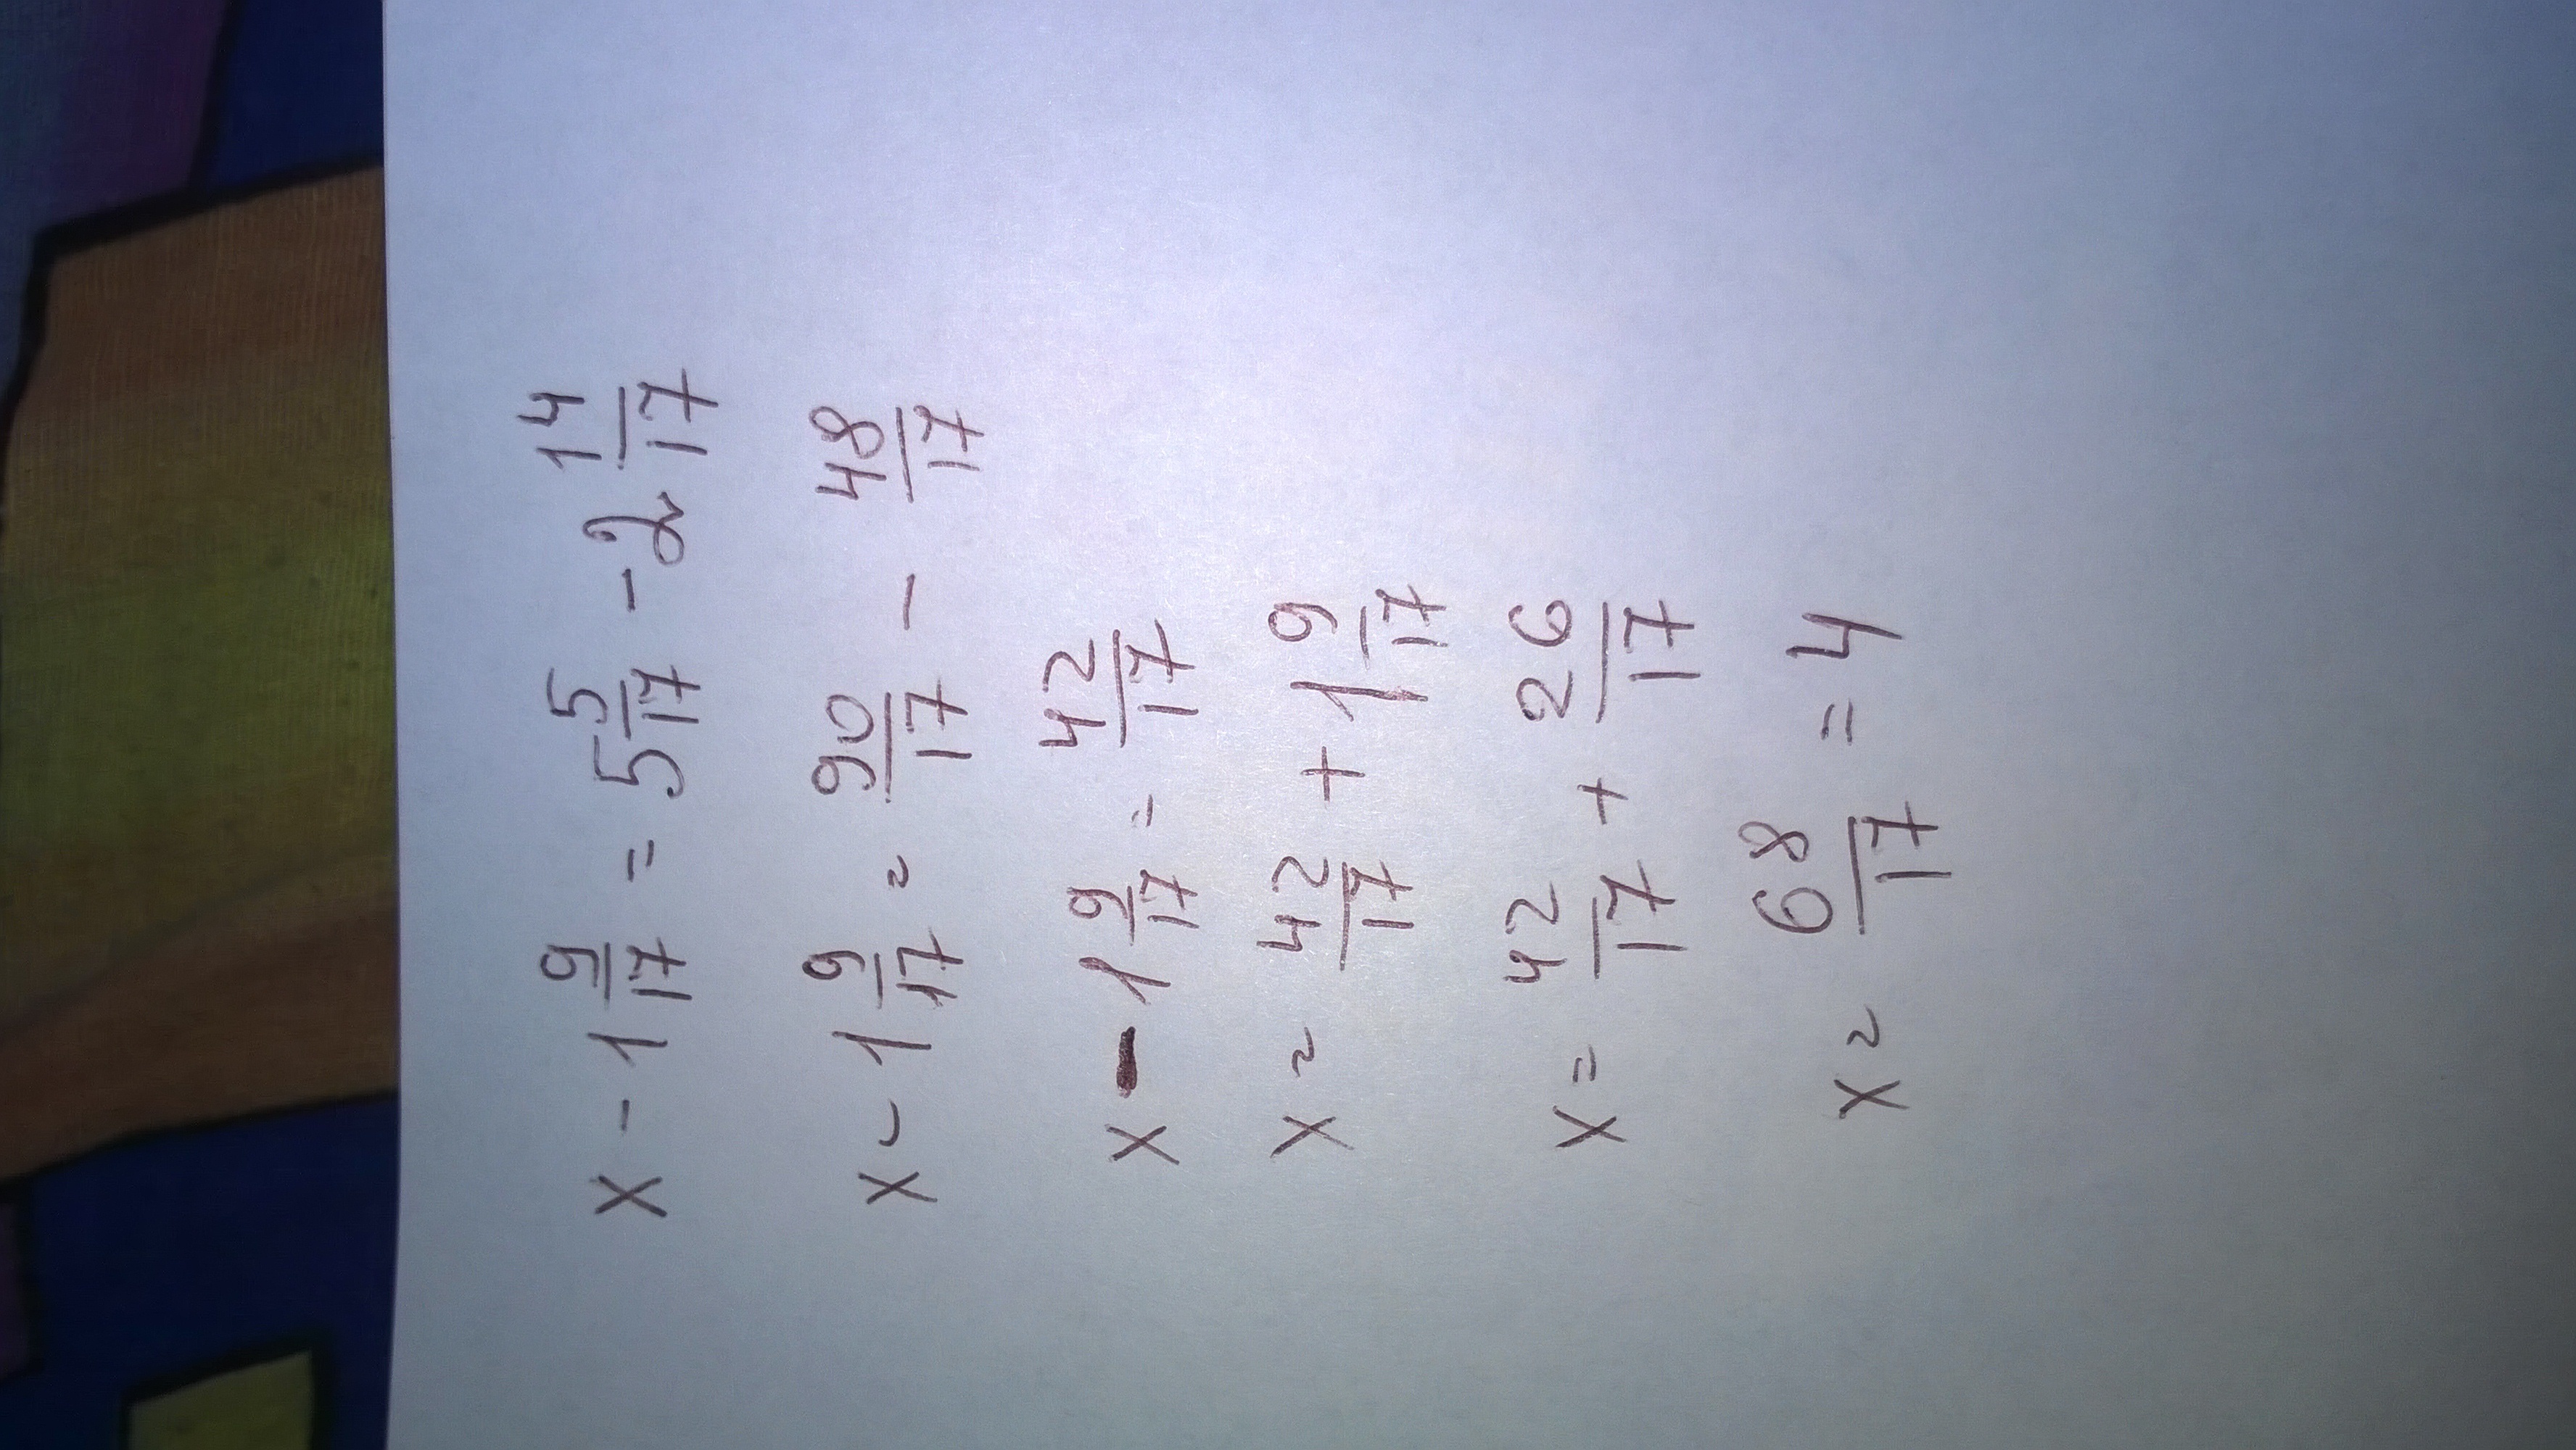 x - 1 9/17 = 5 5/17 - 2 14/17
x - 1 9/17 = 90/17 - 48/17
x - 1 9/17 = 42/17
x = 42/17 + 1 9/17
x = 42/17 + 26/17
x = 68/17 = 4